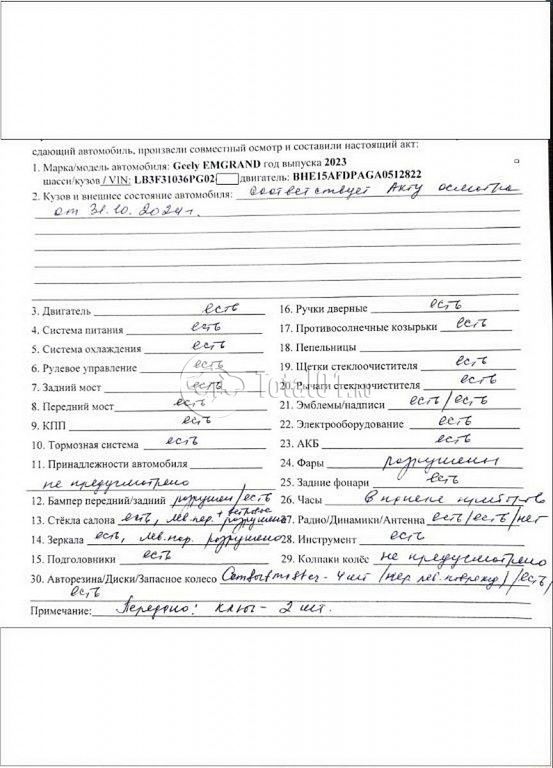 сдающий автомобиль, произвели совместный осмотр и составили настоящий акт:
1. Марка/модель автомобиля: Geely EMGRAND год выпуска 2023
шасси/кузов / VIN: LB3F31036PG02 двигатель: BHE15AFDPAGA0512822
2. Кузов и внешнее состояние автомобиля: соответствует Акту осмотра
от 31.10.2024г.
3. Двигатель есть
4. Система питания есть
5. Система охлаждения есть
6. Рулевое управление есть
7. Задний мост есть
8. Передний мост есть
9. КПП есть
10. Тормозная система есть
11. Принадлежности автомобиля
не предусмотрено
12. Бампер передний/задний разрушен/есть
13. Стёкла салона есть, лев.пер. + ветровое разрушено
14. Зеркала есть, лев.пер. разрушено
15. Подголовники есть
16. Ручки дверные есть
17. Противосолнечные козырьки есть
18. Пепельницы
19. Щетки стеклоочистителя есть
20. Рычаги стеклоочистителя есть
21. Эмблемы/надписи есть/есть
22. Электрооборудование есть
23. АКБ есть
24. Фары разрушены
25. Задние фонари есть
26. Часы в панели приборов
27. Радио/Динамики/Антенна есть/есть/нет
28. Инструмент есть
29. Колпаки колёс не предусмотрено
30. Авторезина/Диски/Запасное колесо 4 шт /пер лев. поврежд/есть/
есть
Примечание: Передано: ключ - 2 шт.
Total01.RU